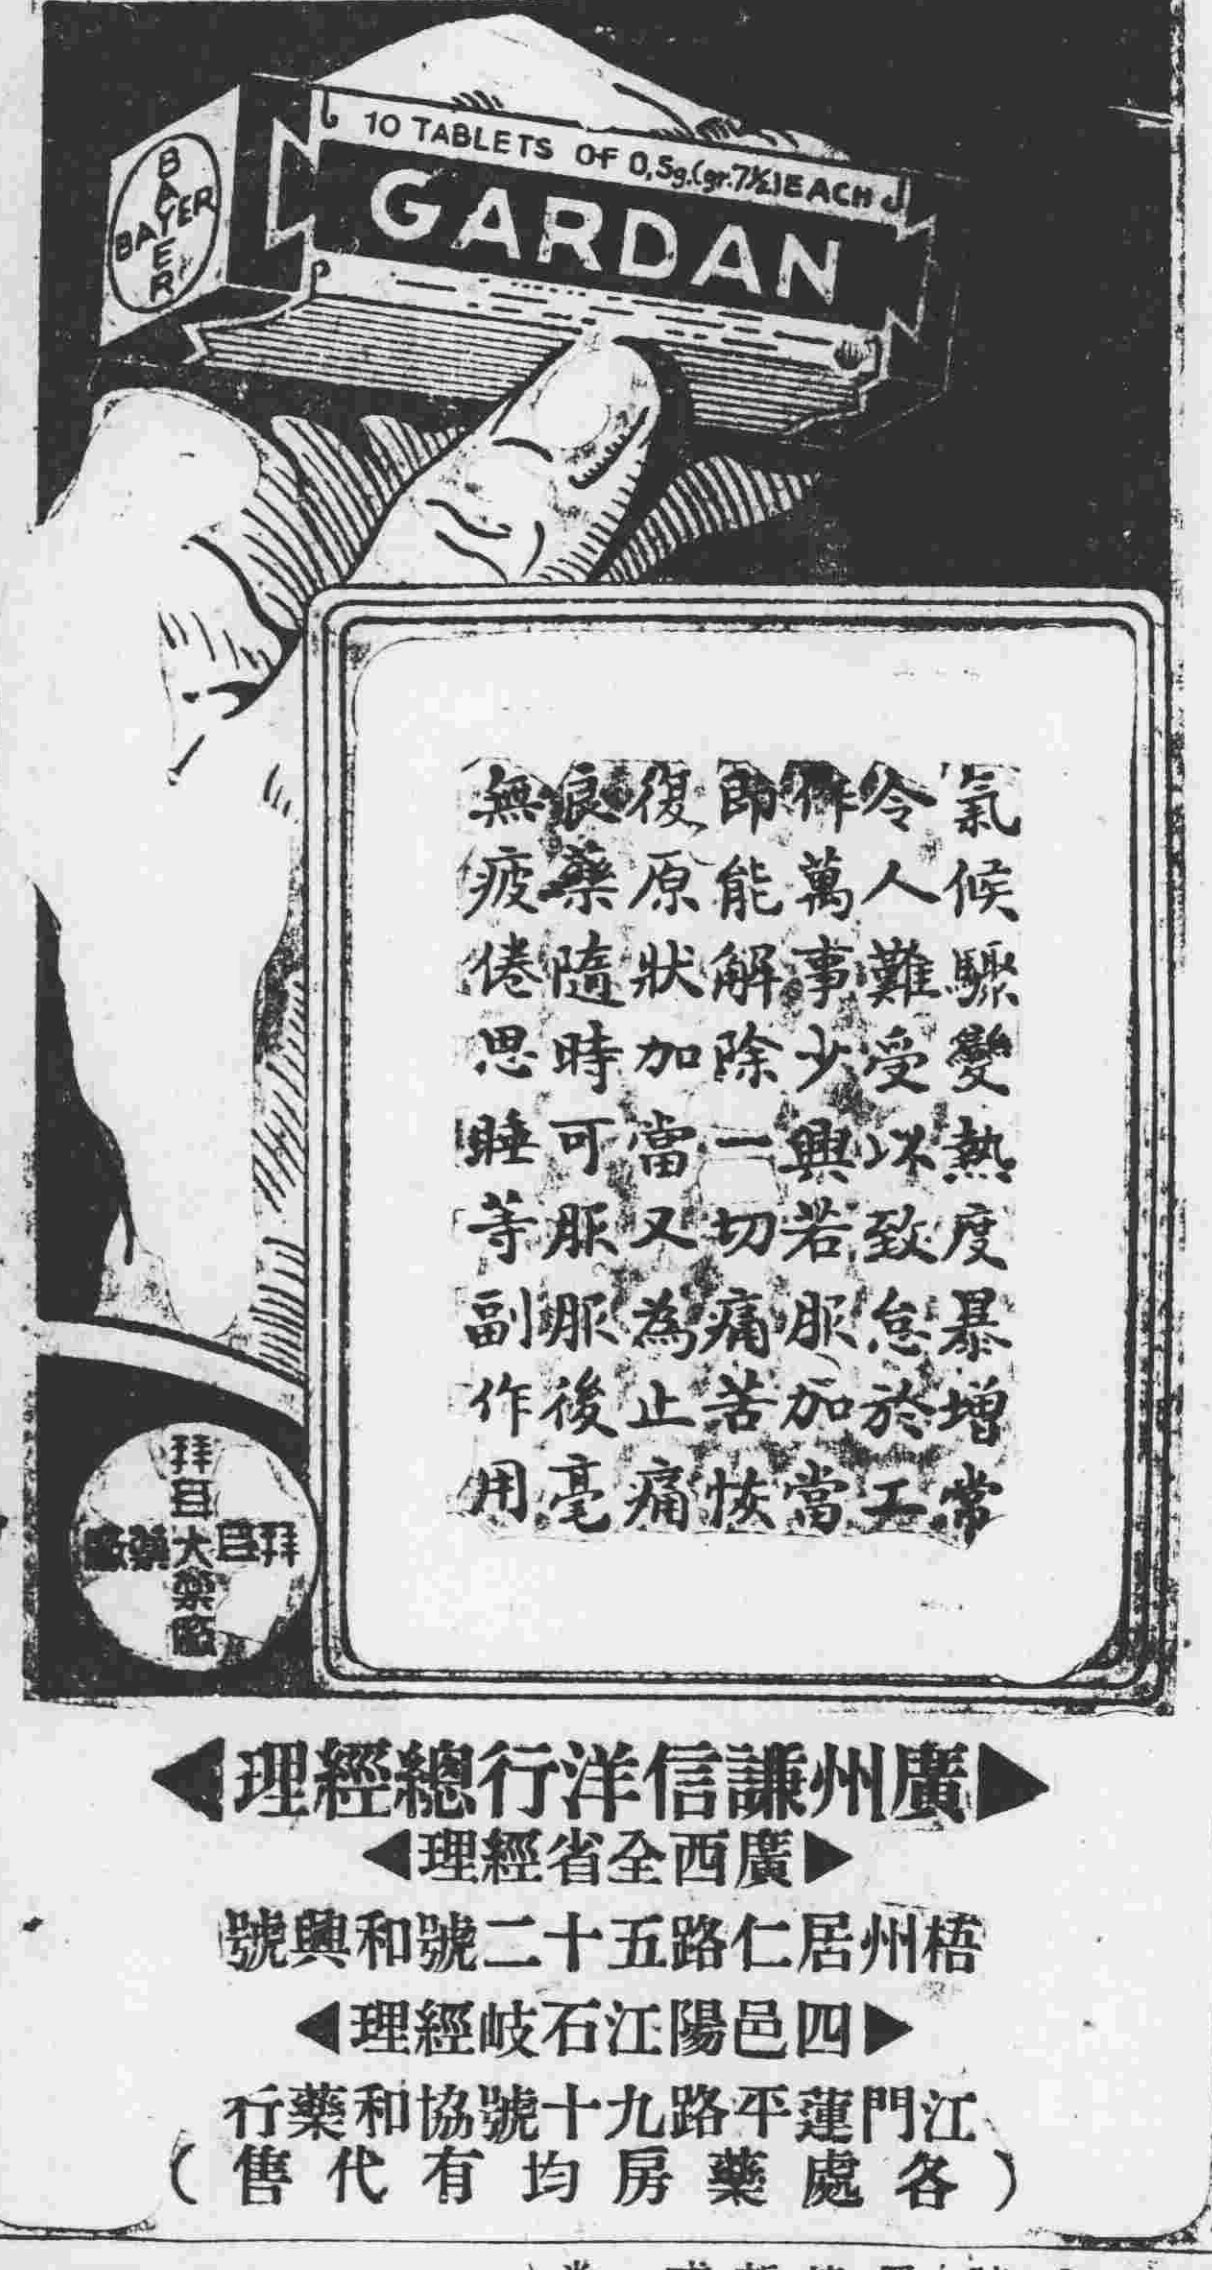 10 TABLETS OF 0,5g.(gr.7½)EACH
GARDAN
BAYER
BAYER
氣候驟變熱度暴增常
令人難受以致怠於工
作萬事少興若服加當
即能解除一切痛苦恢
復原狀加當又為止痛
良藥隨時可服服後毫
無疲倦思睡等副作用
拜耳大藥廠
拜耳大藥廠
廣州謙信洋行總經理
廣西全省經理
梧州居仁路五十二號和興號
四邑陽江石岐經理
江門蓬平路九十號協和藥行
(各處藥房均有代售)